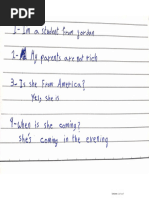 1- Im a student from Jordan
2- My parents are not rich
3- Is she from America?
Yes, she is
4- When is she coming?
she's coming in the evening